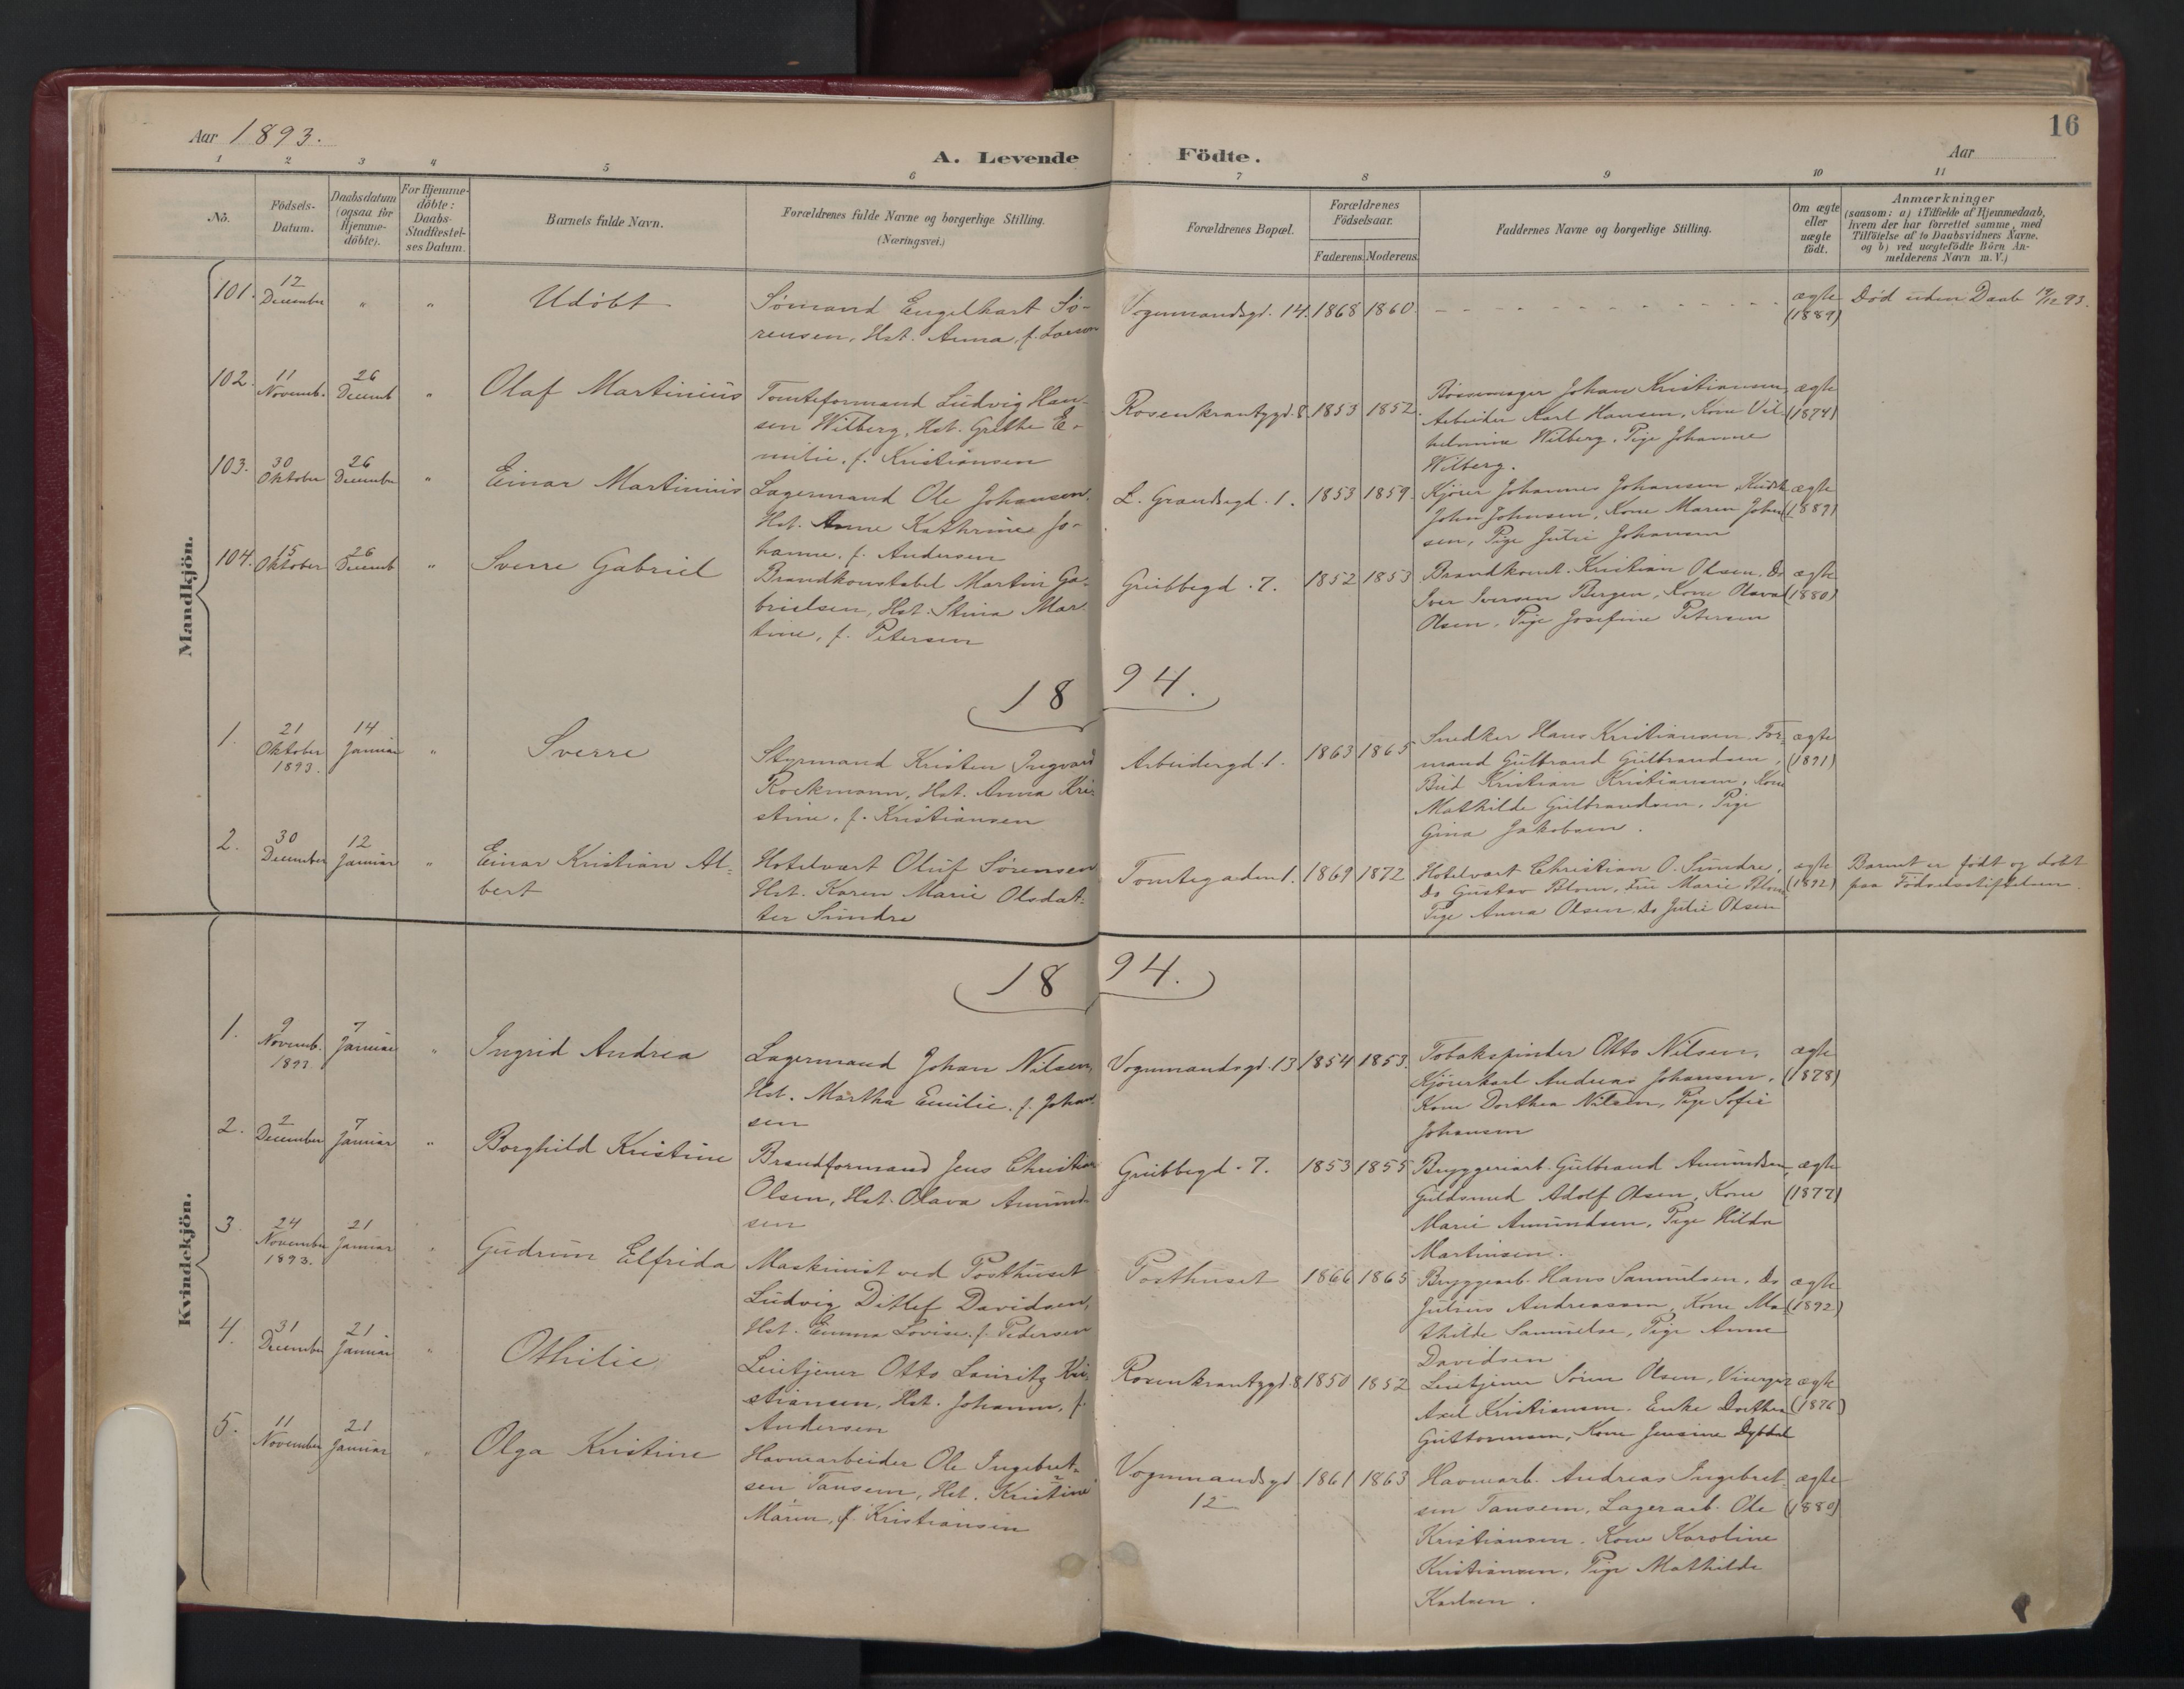 Aar 1893.
A. Levende Födte.
Aar
16
1 2 3 4 5 6 7 8 9 10 11
No.
Födsels-
Datum.
Daabsdatum
(ogsaa for
Hjemme-
döbte).
For Hjemme-
döbte:
Daabs-
Stadfæstel-
ses Datum.
Barnets fulde Navn.
Forældrenes fulde Navne og borgerlige Stilling.
(Næringsvei.)
Forældrenes Bopæl.
Forældrenes
Födselsaar.
Faderens. Moderens.
Faddernes Navne og borgerlige Stilling.
Om ægte
eller
uægte
födt.
Anmærkninger
(saasom: a) i Tilfælde af Hjemmedaab,
hvem der har forrettet samme, med
Tilföielse af to Daabsvidners Navne.
og b) ved uægtefödte Börn An-
melderens Navn m. V.)
Mandkjön.
101.
12
December
"
"
Udöbt
Sömand Engelhart Sö-
rensen, Hst. Anna, f. Larsen
Vognmandsgd. 14.
1868 1860.
ægte
(1889)
Död uden Daab 19/12 93.
102.
11
Novemb.
26
Decemb
"
Olaf Martinius
Tomteformand Ludvig Han-
sen Wilberg, Hst. Grethe E-
milie, f. Kristiansen
Rosenkrantzgd. 8
1853 1852.
Bössemager Johan Kristiansen,
Arbeider Karl Hansen, Kone Vil-
helmine Wilberg, Pige Johanne
Wilberg.
ægte
(1874)
103.
30
Oktober
26
December
"
Einar Martinius
Lagermand Ole Johansen,
Hst. Anne Kathrine Jo-
hanne, f. Andersen
L. Grandsegd. 1.
1853 1859.
Kjörer Johannes Johansen, Kudsk
John Johnsen, Kone Maren Johan-
sen, Pige Julie Johansen
ægte
(1889)
104.
15
Oktober
26
Decemb
"
Sverre Gabriel
Brandkonstabel Martin Ga-
brielsen, Hst. Stina Mar-
tine, f. Petersen
Grubbegd. 7.
1852 1853
Brandkonst. Kristian Olsen, Do
Iver Iversen Bergen, Kone Olava
Olsen, Pige Josefine Petersen
ægte
(1880)
1894.
1.
21
Oktober
1893.
14
Januar
"
Sverre
Styrmand Kristen Ingvard
Rockmann, Hst. Anna Kri-
stine, f. Kristiansen
Arbeidergd. 1.
1863 1865
Snedker Hans Kristiansen, For-
mand Gulbrand Gulbrandsen,
Bud Kristian Kristiansen, Kone
Mathilde Gulbrandsen, Pige
Gina Jakobsen.
ægte
(1891)
2.
30
December
12
Januar
"
Einar Kristian Al-
bert
Hotelvært Oluf Sörensen
Hst. Karen Marie Olsdat-
ter Sundre
Tomtegaden 1.
1869 1872
Hotelvært Christian O. Sundre,
Do Gustav Blom, Fru Marie Blom,
Pige Anna Olsen, Do Julie Olsen
ægte
(1892)
Barnet er födt og döbt
paa Födselsstiftelsen.
Kvindekjön.
1894.
1.
9
Novemb.
1893
7
Januar
"
Ingrid Andrea
Lagermand Johan Nilsen,
Hst. Martha Emilie, f. Johan-
sen
Vognmandsgd. 13
1854 1853.
Tobakspinder Otto Nilsen,
Kjörerkarl Andreas Johansen,
Kone Dorthea Nilsen, Pige Sofie
Johansen
ægte
(1878)
2.
2
December
7
Januar
"
Borghild Kristine
Brandformand Jens Christian
Olsen, Hst. Olava Amund-
sen
Grubbegd. 7.
1853 1855
Bryggeriarb. Gulbrand Amundsen,
Guldsmed Adolf Olsen, Kone
Marie Amundsen, Pige Hilda
Martinsen.
ægte
(1877)
3.
24
November
1893.
21
Januar
"
Gudrun Elfrida
Maskinist ved Posthuset
Ludvig Ditlef Davidsen,
Hst. Emma Lovise, f. Pedersen
Posthuset
1866 1865
Bryggearb. Hans Samuelsen, Do
Julius Andreassen, Kone Ma-
thilde Samuelse, Pige Anne
Davidsen
ægte
(1892)
4.
31
December
21
Januar
"
Othilie
Leietjener Otto Lauritz Kri-
stiansen, Hst. Johanne, f.
Andersen
Rosenkrantzgd. 8
1850 1852
Leietjener Sören Olsen,
Axel Kristiansen, Enke Dorthea
Guttormsen, Kone Jensine Dybdal
ægte
(1876)
5.
11
November
21
Januar
"
Olga Kristine
Havnearbeider Ole Ingebret-
sen Tansem, Hst. Kristine
Maren, f. Kristiansen
Vognmandsgd
12
1861 1863
Havnearb. Andreas Ingebret-
sen Tansem, Lagerarb. Ole
Kristiansen, Kone Karoline
Kristiansen, Pige Mathilde
Karlsen.
ægte
(1880)